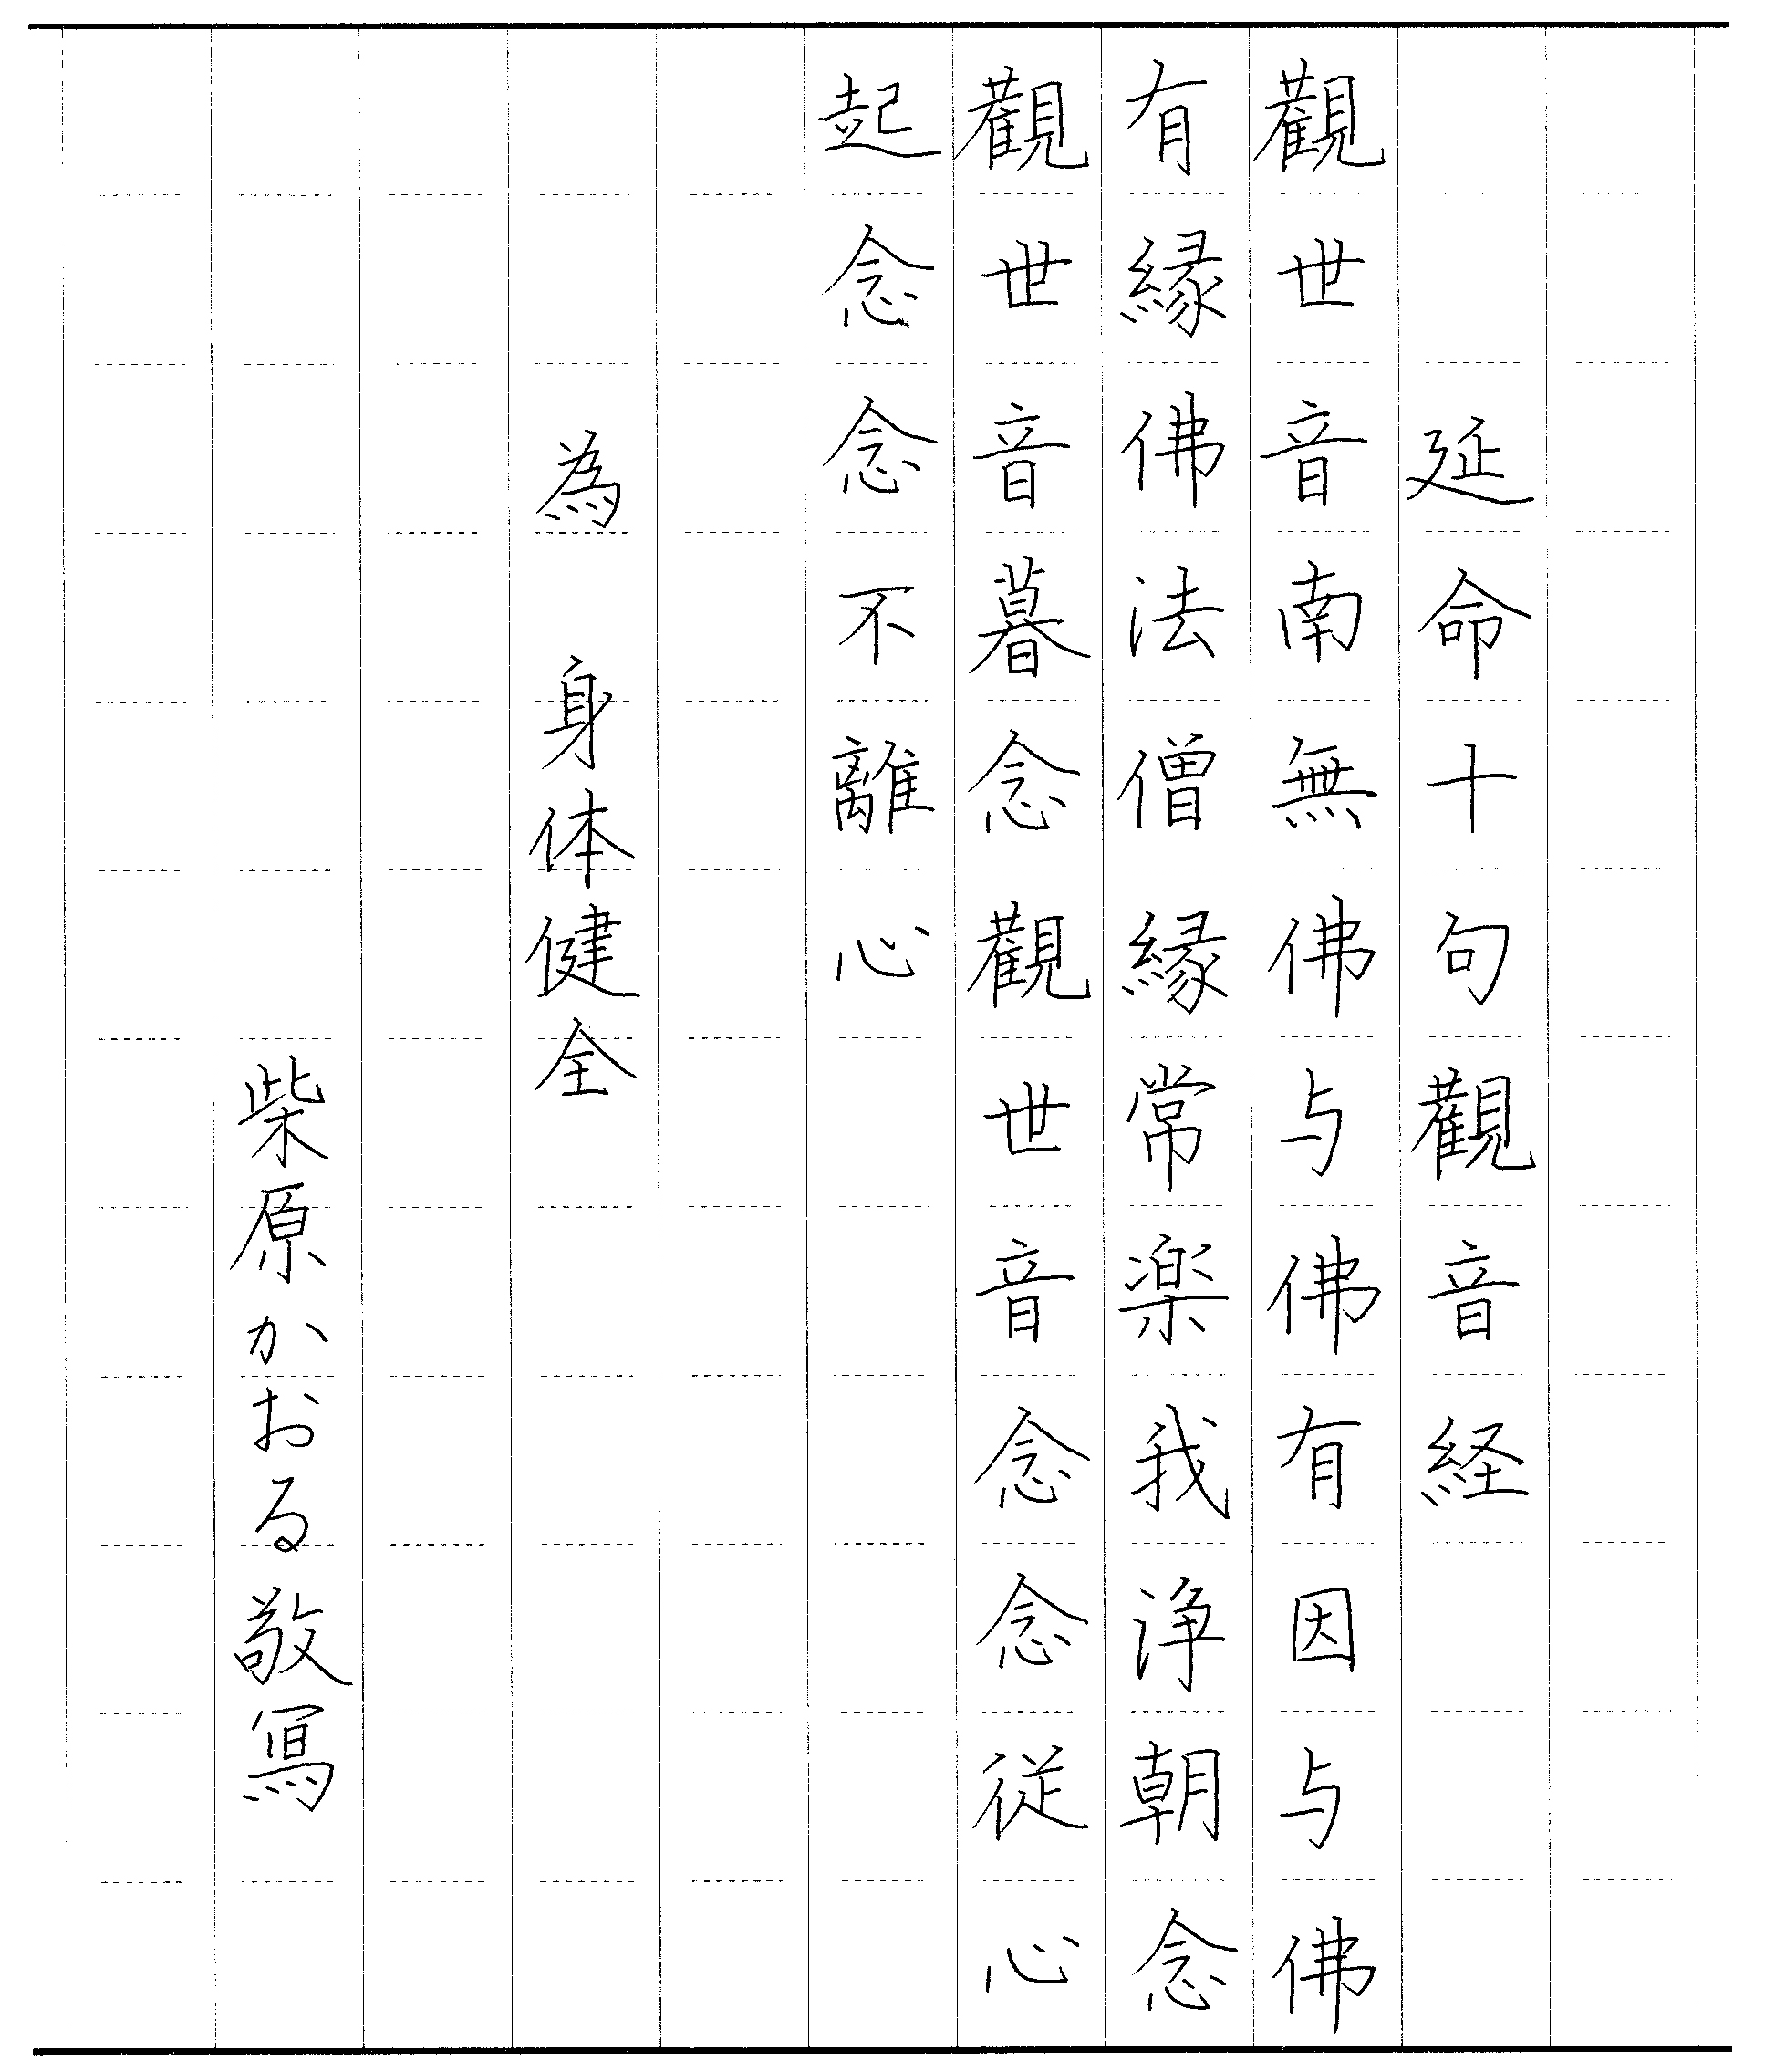 延命十句觀音経
觀世音南無佛与佛有因与佛
有縁佛法僧縁常楽我浄朝念
觀世音暮念觀世音念念従心
起念念不離心
為 身体健全
柴原かおる敬寫